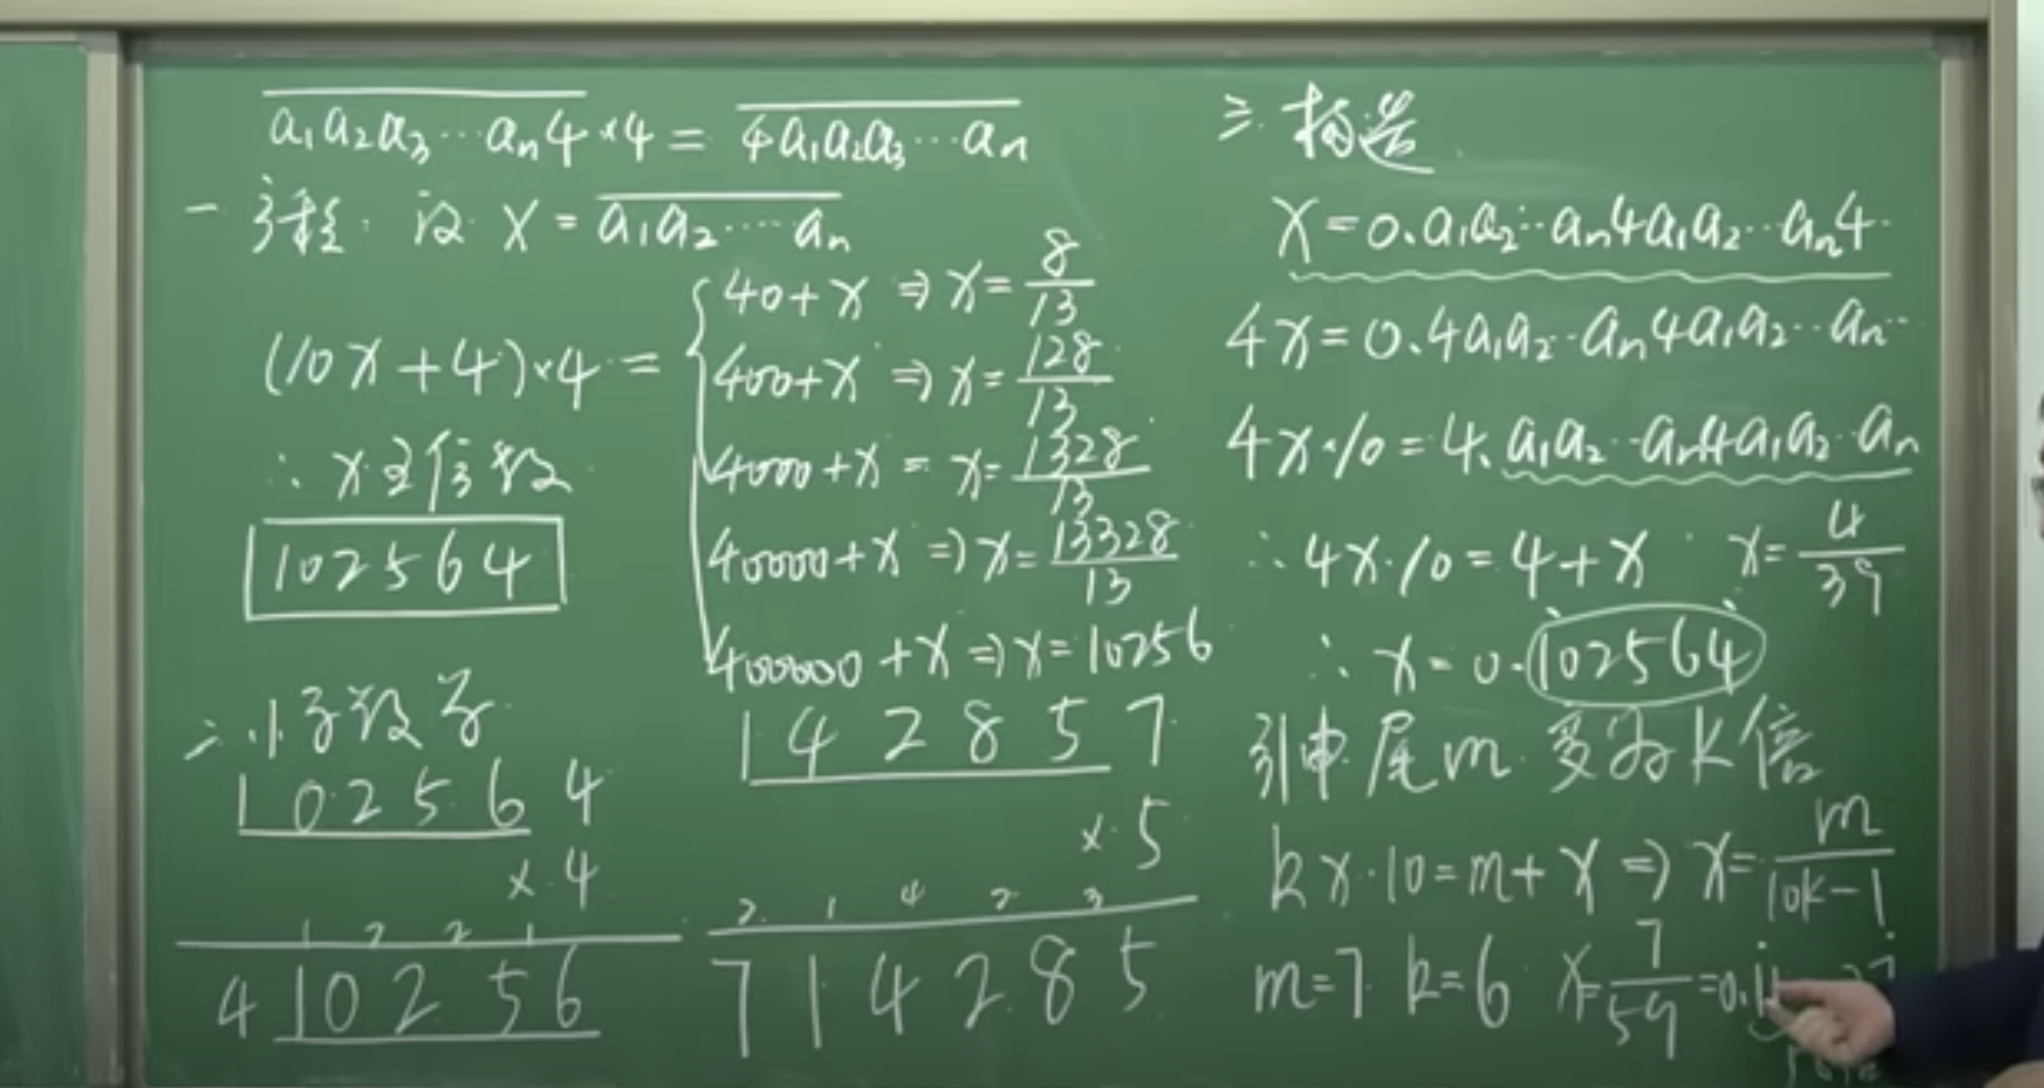 a₁a₂a₃…aₙ4×4 = 4a₁a₂a₃…aₙ
一 方程. 设 X = a₁a₂……aₙ
(10X+4)×4 =
40+X ⇒ X= 8/13
400+X ⇒ X= 128/13
4000+X = X= 1328/13
40000+X ⇒ X= 13328/13
400000+X ⇒ X= 10256
∴ X是倍数
102564
二.小子数子
102564
×4
1 2 2 1
410256
142857
×5
2 1 4 2 3
714285
三.构造
X=0.a₁a₂…aₙ4a₁a₂…aₙ4…
4X=0.4a₁a₂…aₙ4a₁a₂…aₙ…
4X·10=4.a₁a₂…aₙ4a₁a₂…aₙ
∴4X·10=4+X X= 4/39
∴ X=0.1̇02564̇
引申尾m.变为K倍
kX·10=m+X ⇒ X= m/(10k-1)
m=7 k=6 X= 7/59 =0.1̇